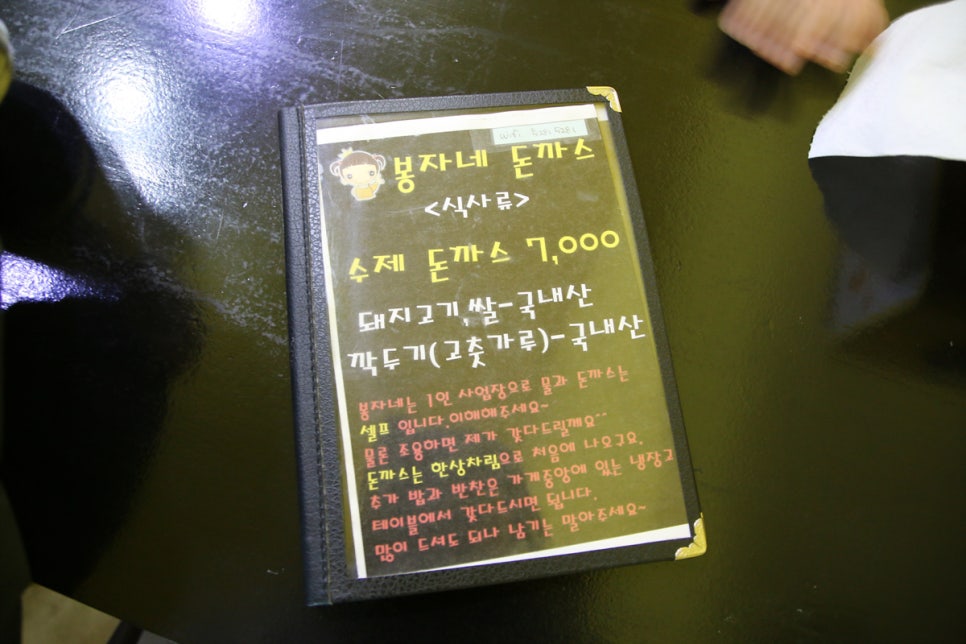 Wifi
봉자네 돈까스
<식사류>
수제 돈까스 7,000
돼지고기,쌀-국내산
깍두기(고춧가루)-국내산
봉자네는 1인 사업장으로 물과 돈까스는
셀프 입니다.이해해주세요~
물론 조용하면 제가 갖다드릴께요^^
돈까스는 한상차림으로 처음에 나오구요.
추가 밥과 반찬은 가게중앙에 있는 냉장고
테이블에서 갖다드시면 됩니다.
많이 드셔도 되나 남기는 말아주세요~